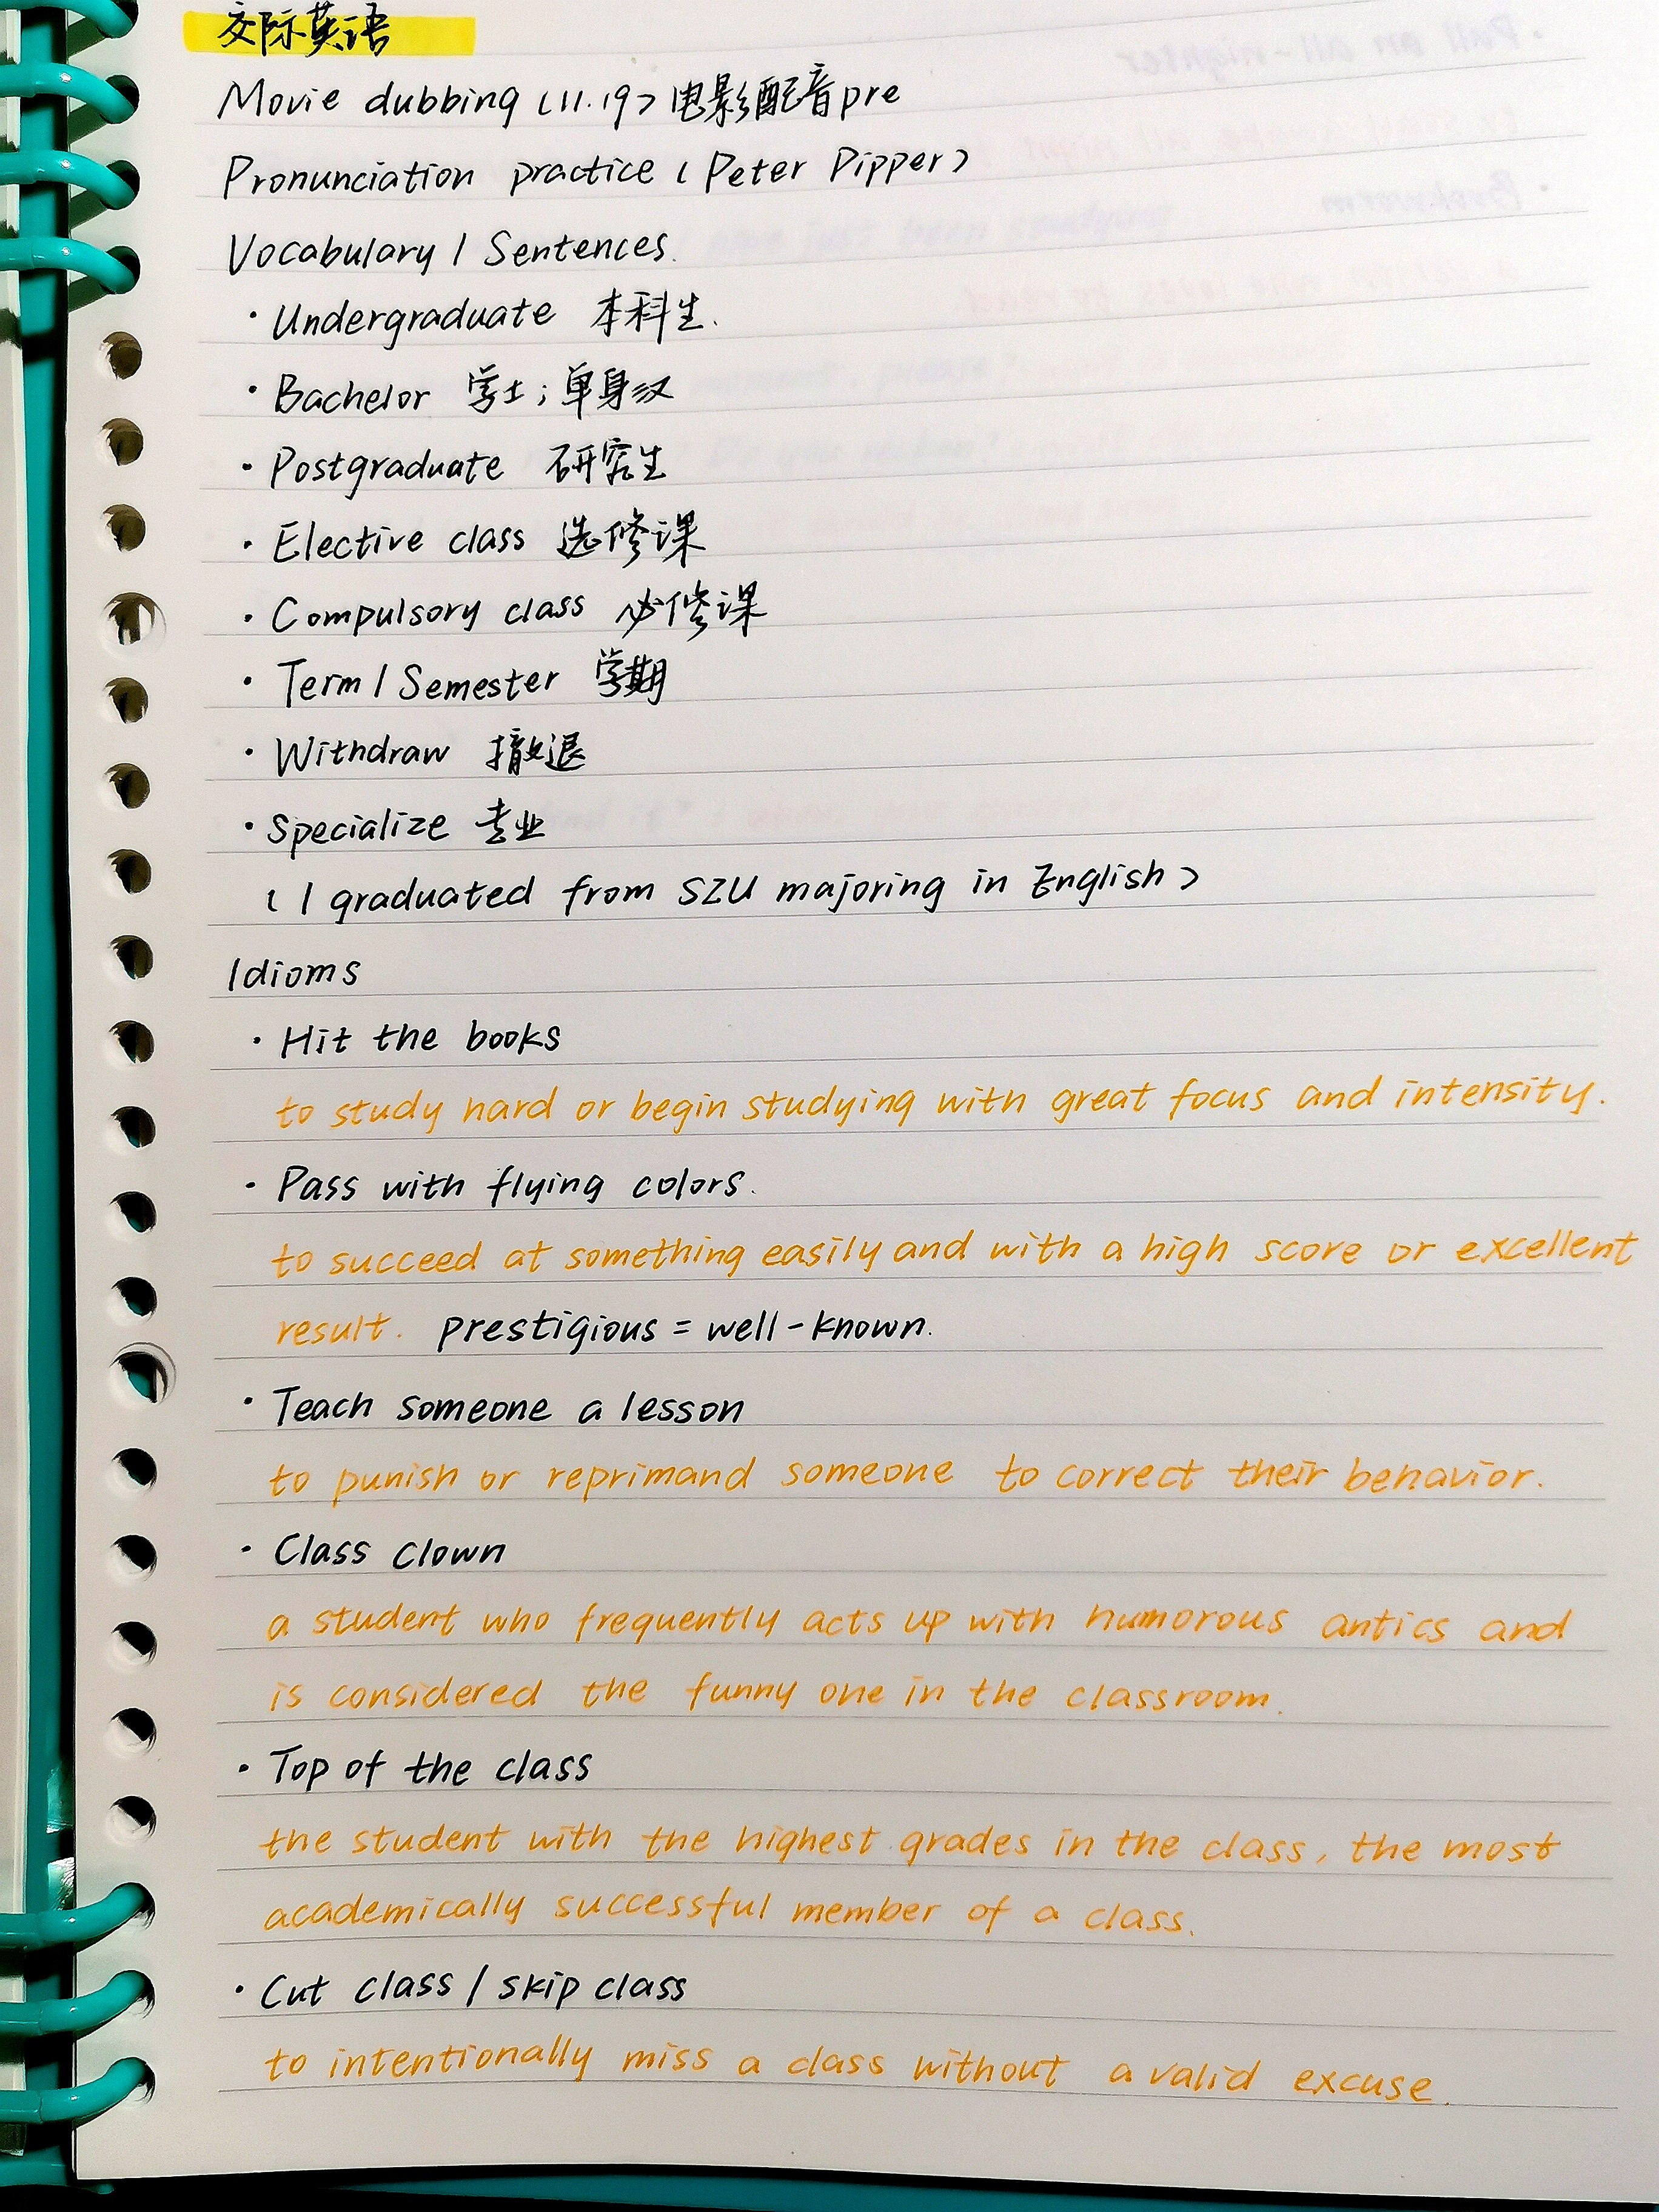 交际英语
Movie dubbing (11.19) 电影配音pre
Pronunciation practice (Peter Pipper)
Vocabulary / Sentences.
· Undergraduate 本科生.
· Bachelor 学士; 单身汉
· Postgraduate 研究生
· Elective class 选修课
· Compulsory class 必修课
· Term / Semester 学期
· Withdraw 撤退
· Specialize 专业
( I graduated from SZU majoring in English )
Idioms
· Hit the books
to study hard or begin studying with great focus and intensity.
· Pass with flying colors.
to succeed at something easily and with a high score or excellent
result. prestigious = well-known.
· Teach someone a lesson
to punish or reprimand someone to correct their behavior.
· Class clown
a student who frequently acts up with humorous antics and
is considered the funny one in the classroom.
· Top of the class
the student with the highest grades in the class, the most
academically successful member of a class.
· Cut class / skip class
to intentionally miss a class without a valid excuse.